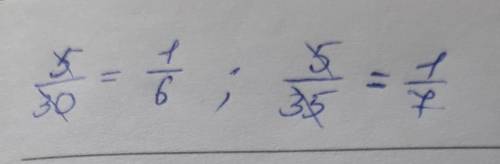 5/30 = 1/6 ; 5/35 = 1/7